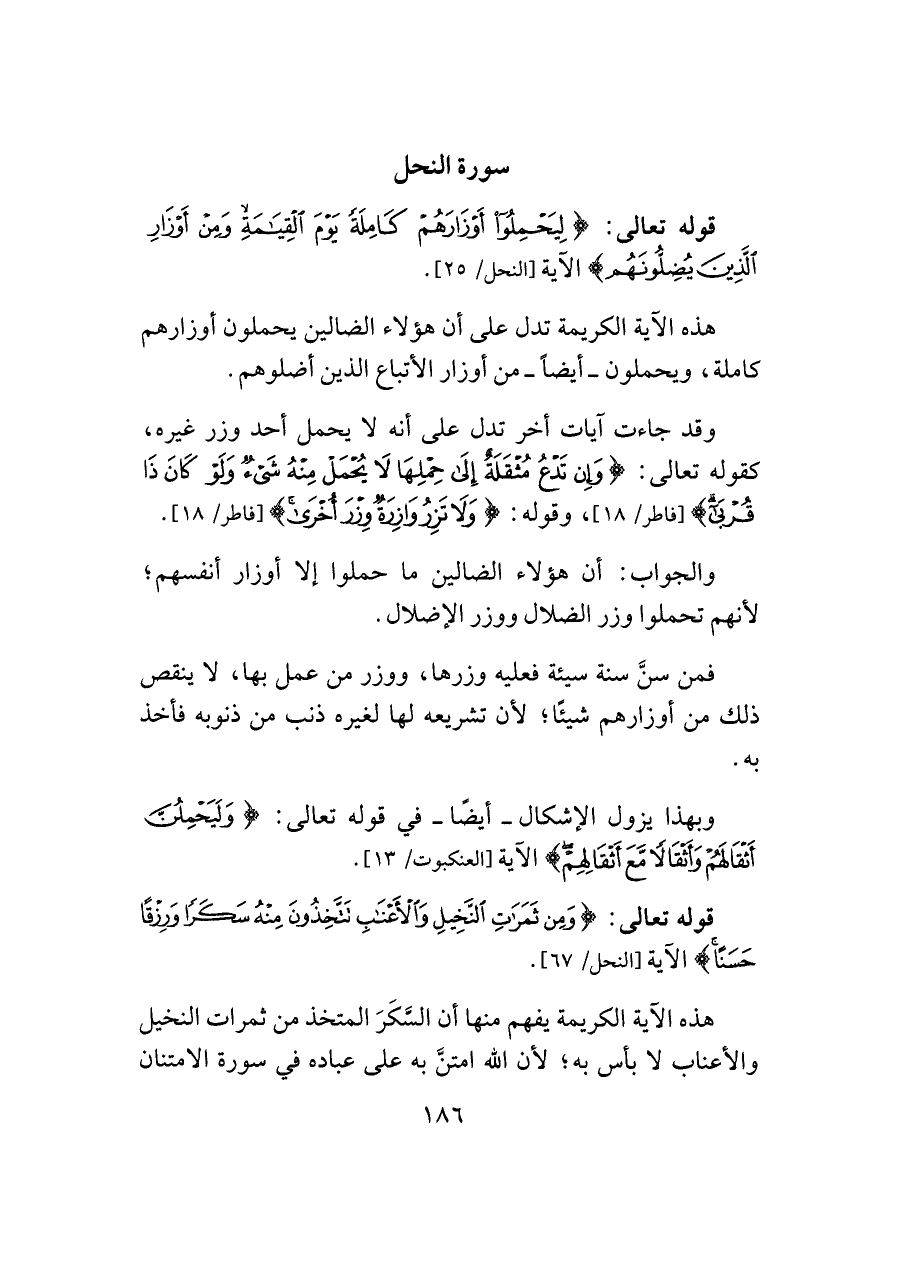 سورة النحل
قوله تعالى: ﴿ لِيَحْمِلُوٓا۟ أَوْزَارَهُمْ كَامِلَةً يَوْمَ ٱلْقِيَـٰمَةِ ۙ وَمِنْ أَوْزَارِ
ٱلَّذِينَ يُضِلُّونَهُم ﴾ الآية [النحل/ ٢٥].
هذه الآية الكريمة تدل على أن هؤلاء الضالين يحملون أوزارهم
كاملة، ويحملون ـ أيضاً ـ من أوزار الأتباع الذين أضلوهم.
وقد جاءت آيات أخر تدل على أنه لا يحمل أحد وزر غيره،
كقوله تعالى: ﴿ وَإِن تَدْعُ مُثْقَلَةٌ إِلَىٰ حِمْلِهَا لَا يُحْمَلْ مِنْهُ شَىْءٌ وَلَوْ كَانَ ذَا
قُرْبَىٰٓ ۗ ﴾ [فاطر/ ١٨]، وقوله: ﴿ وَلَا تَزِرُ وَازِرَةٌ وِزْرَ أُخْرَىٰ ۚ ﴾ [فاطر/ ١٨].
والجواب: أن هؤلاء الضالين ما حملوا إلا أوزار أنفسهم؛
لأنهم تحملوا وزر الضلال ووزر الإضلال.
فمن سنَّ سنة سيئة فعليه وزرها، ووزر من عمل بها، لا ينقص
ذلك من أوزارهم شيئًا؛ لأن تشريعه لها لغيره ذنب من ذنوبه فأخذ
به.
وبهذا يزول الإشكال ـ أيضًا ـ في قوله تعالى: ﴿ وَلَيَحْمِلُنَّ
أَثْقَالَهُمْ وَأَثْقَالًا مَّعَ أَثْقَالِهِمْ ۖ ﴾ الآية [العنكبوت/ ١٣].
قوله تعالى: ﴿ وَمِن ثَمَرَٰتِ ٱلنَّخِيلِ وَٱلْأَعْنَـٰبِ تَتَّخِذُونَ مِنْهُ سَكَرًا وَرِزْقًا
حَسَنًا ۚ ﴾ الآية [النحل/ ٦٧].
هذه الآية الكريمة يفهم منها أن السَّكَرَ المتخذ من ثمرات النخيل
والأعناب لا بأس به؛ لأن الله امتنَّ به على عباده في سورة الامتنان
١٨٦